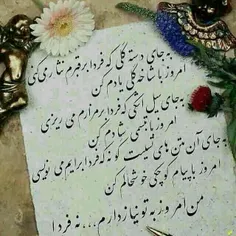 به جای دسته گلی که فردا بر قبرم نثار می‌کنی
امروز با شاخه گلی یادم کن
به جای سیل اشکی که فردا بر مزارم می ریزی
امروز با تبسمی شادم کن
به جای آن متن های تسلیت گونه که فردا برایم می نویسی
امروز با پیام کوچکی خوشحالم کن
من امروز به تو نیاز دارم ... نه فردا